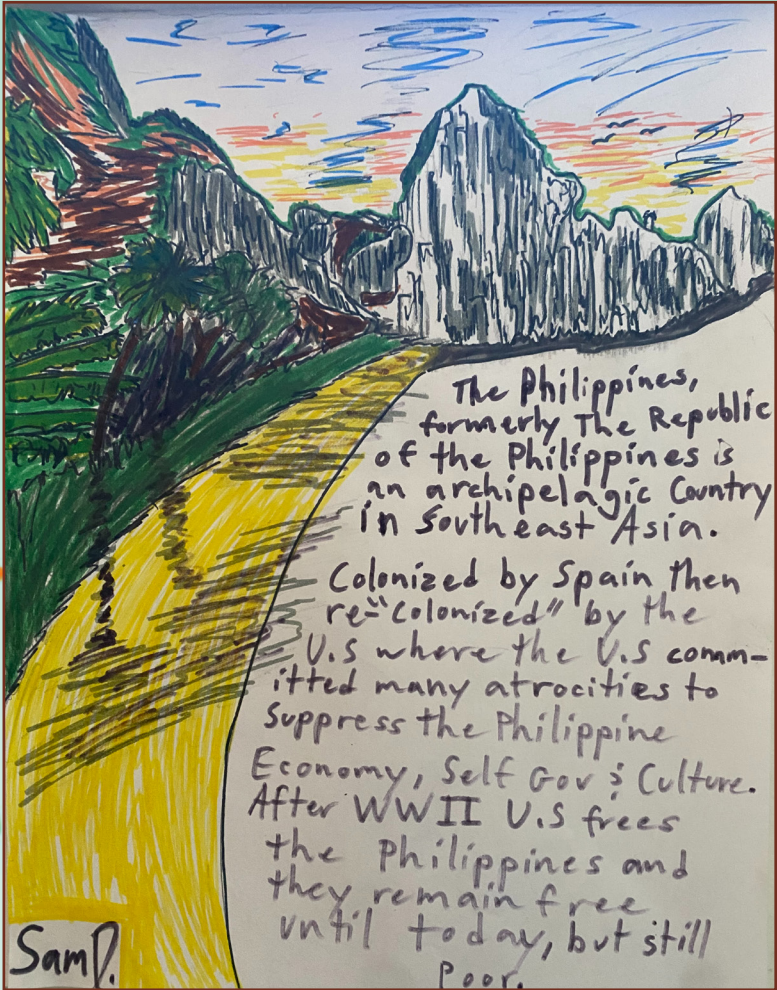 The Philippines,
formerly The Republic
of the Philippines is
an archipelagic Country
in Southeast Asia.
Colonized by Spain then
re-"colonized" by the
U.S where the U.S comm-
itted many atrocities to
Suppress the Philippine
Economy, Self Gov & Culture.
After WWII U.S frees
the Philippines and
they remain free
until today, but still
Poor.
Sam D.